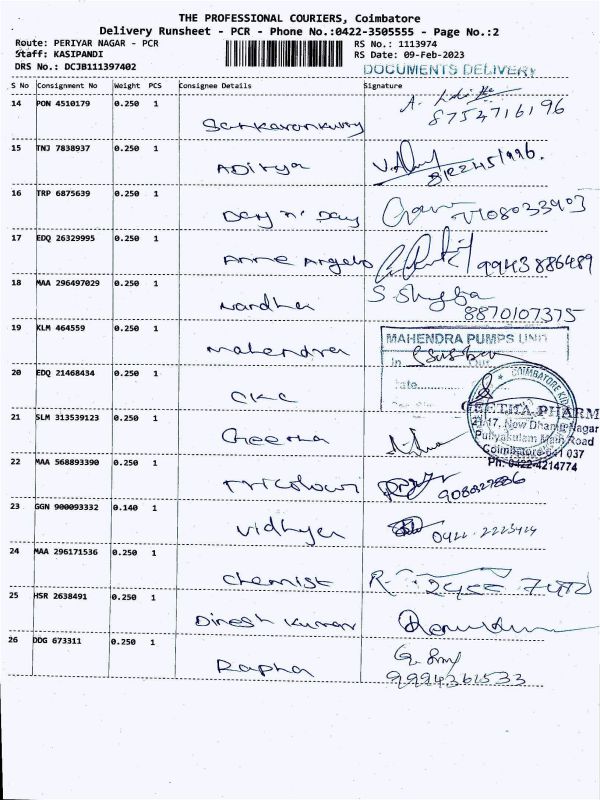 THE PROFESSIONAL COURIERS, Coimbatore
Delivery Runsheet - PCR - Phone No.:0422-3505555 - Page No.:2
Route: PERIYAR NAGAR - PCR
Staff: KASIPANDI
DRS No.: DCJB111397402
RS No.: 1113974
RS Date: 09-Feb-2023
DOCUMENTS DELIVERY
S No Consignment No Weight PCS Consignee Details Signature
14 PON 4510179 0.250 1
8754716196
15 TNJ 7838937 0.250 1 Aditya
16 TRP 6875639 0.250 1 Day n' Day
17 EDQ 26329995 0.250 1 Anne Angelo 9943886489
18 MAA 296497029 0.250 1 Nardha
8870107375
19 KLM 464559 0.250 1 Mahendra
MAHENDRA PUMPS UNIT
20 EDQ 21468434 0.250 1 CKC
Date
COIMBATORE
21 SLM 313539123 0.250 1 Geetha
GEETHA PHARM
21/17, New Dhamu Nagar
Puliyakulam Main Road
Coimbatore-641 037
Ph: 0422-4214774
22 MAA 568893390 0.250 1 Tricolour
23 GGN 900093332 0.140 1 Vidhya 0422-2223424
24 MAA 296171536 0.250 1 Chemist
25 HSR 2638491 0.250 1 Dinesh Kumar
26 DDG 673311 0.250 1 Rapha
9994361533